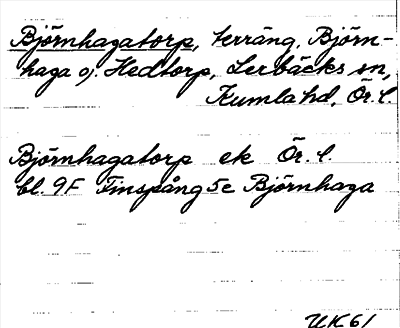 Björnhagatorp, terräng, Björn-
haga o. Hedtorp, Lerbäcks sn,
Kumla hd, Ör. l.
Björnhagatorp ek Ör. l.
bl. 9F Finspång 5c Björnhaga
UK 61